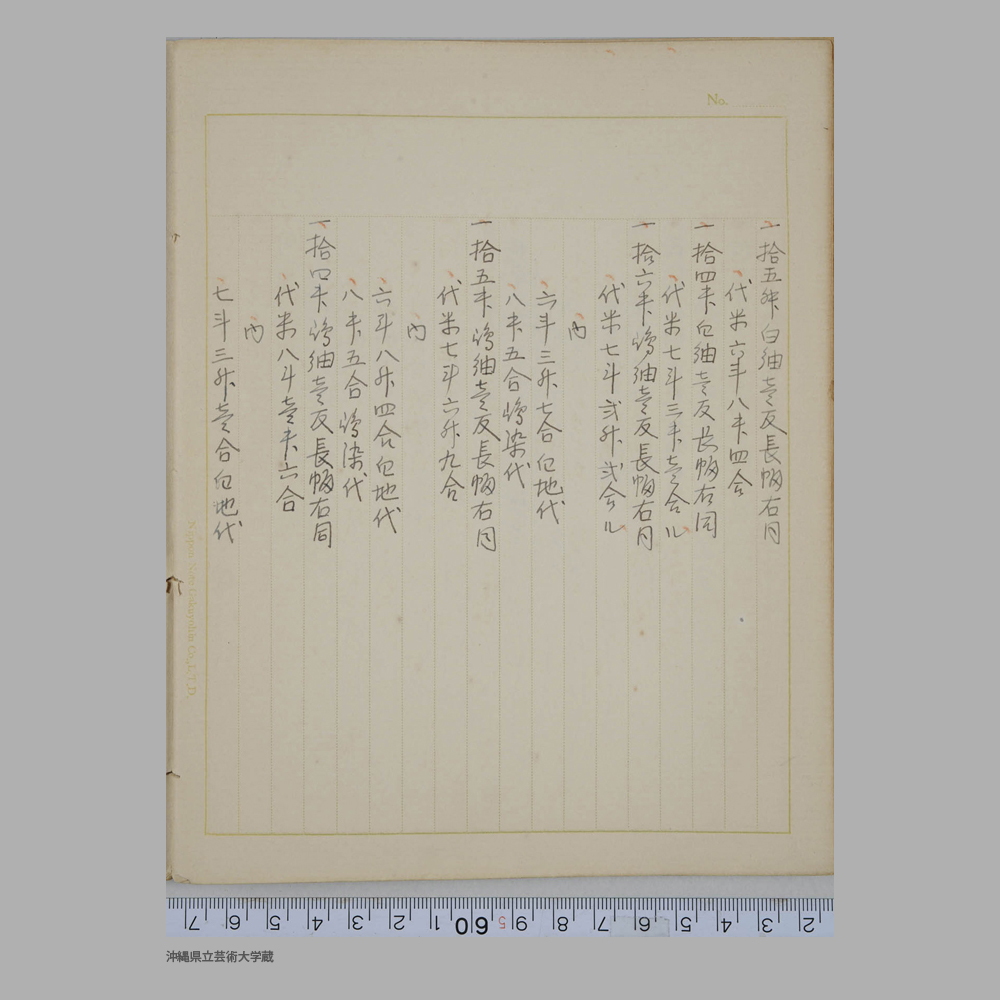 No.
一拾五升白紬壱反長幅右同
代米六斗八升四合
一拾四升白紬壱反長幅右同
代米七斗三升壱合ル
一拾六升嶋紬壱反長幅右同
代米七斗弐升弐合ル
内
六斗三升七合白地代
八升五合嶋染代
一拾五升嶋紬壱反長幅右同
代米七斗六升九合
内
六斗八升四合白地代
八升五合嶋染代
一拾四升嶋紬壱反長幅右同
代米八斗壱升六合
内
七斗三升壱合白地代
Nippon Note Gakuyohin Co., LTD.
2 3 4 5 6 7 8 9 5 60 1 2 3 4 5 6 7
沖縄県立芸術大学蔵